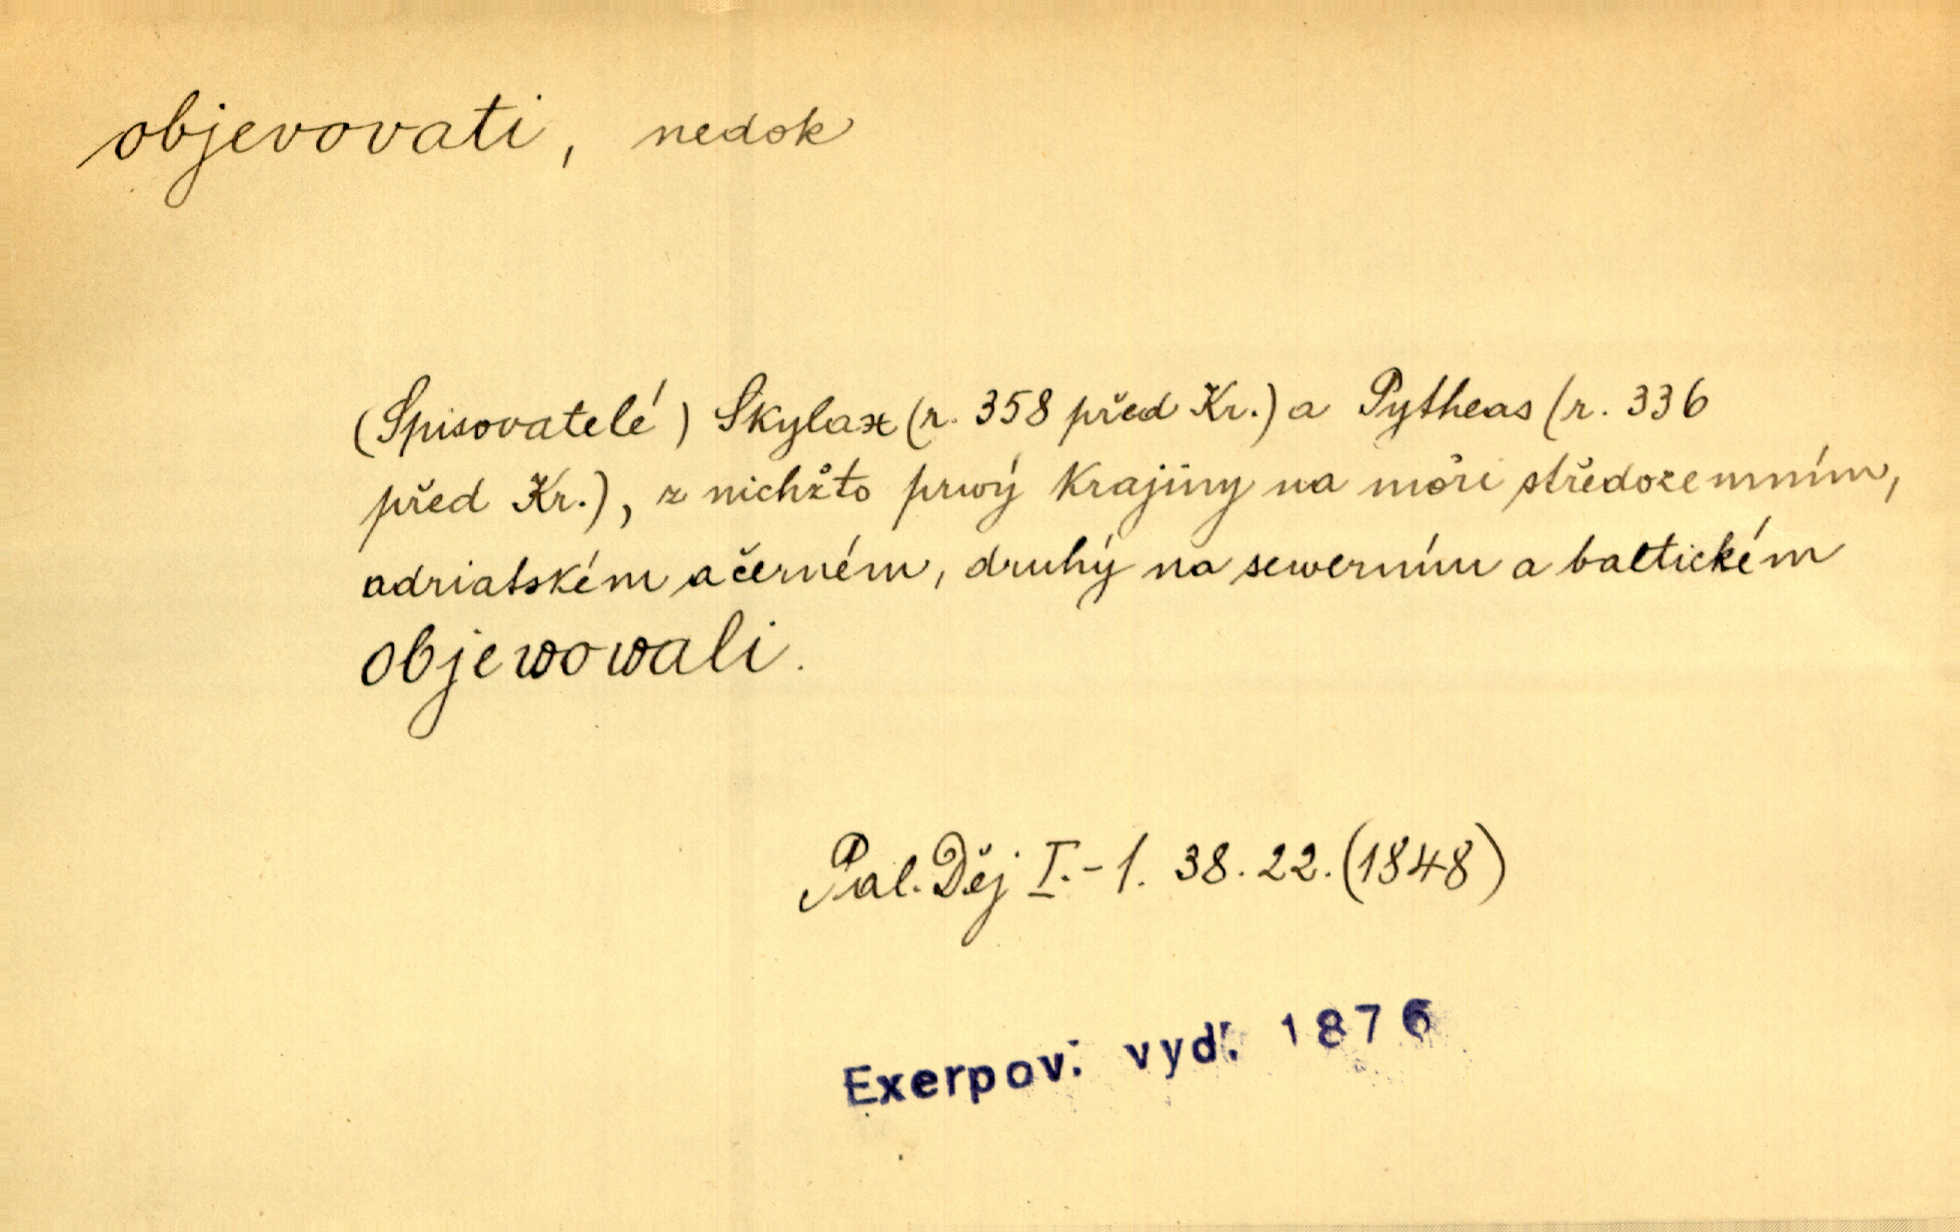 objevovati, nedok
(Spisovatelé) Skylax (r. 358 před Kr.) a Pytheas (r. 336
před Kr.), z nichžto prwý krajiny na moři středozemním,
adriatském a černém, druhý na sewerním a baltickém
objewowali.
Pal. Děj I.-1. 38. 22. (1848)
Exerpov. vyd. 1876